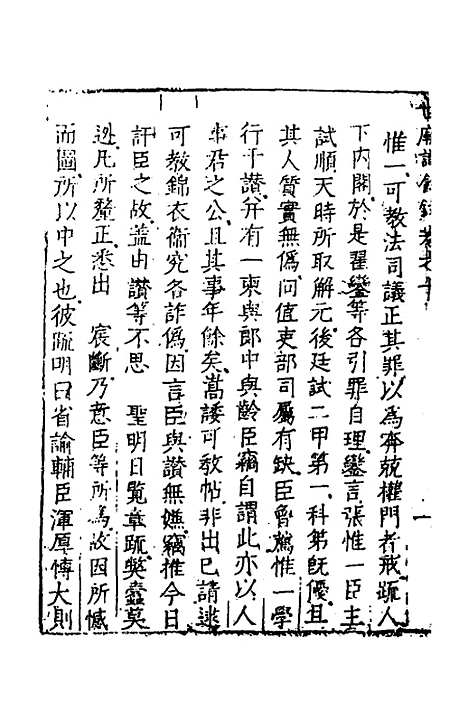 世廟識餘錄卷之十
惟一可教法司議正其罪以爲奔兢權門者戒疏入
下內閣於是翟鑾等各引罪自理鑾言張惟一臣主
試順天時所取解元後廷試二甲第一科第旣優且
其人質實無僞向值吏部司屬有缺臣曾薦惟一學
行于讚并有一柬與郎中與齡臣竊自謂此亦以人
事君之公且其事年餘矣嵩諉可教帖非出己請逮
可教錦衣衛究各詐僞因言臣與讚無嫌竊惟今日
訐臣之故蓋由讚等不思 聖明日覧章疏獘蠧莫
逃凡所釐正悉出 宸斷乃意臣等所爲故因所憾
而圖所以中之也彼疏明曰省諭輔臣渾厚博大則
一